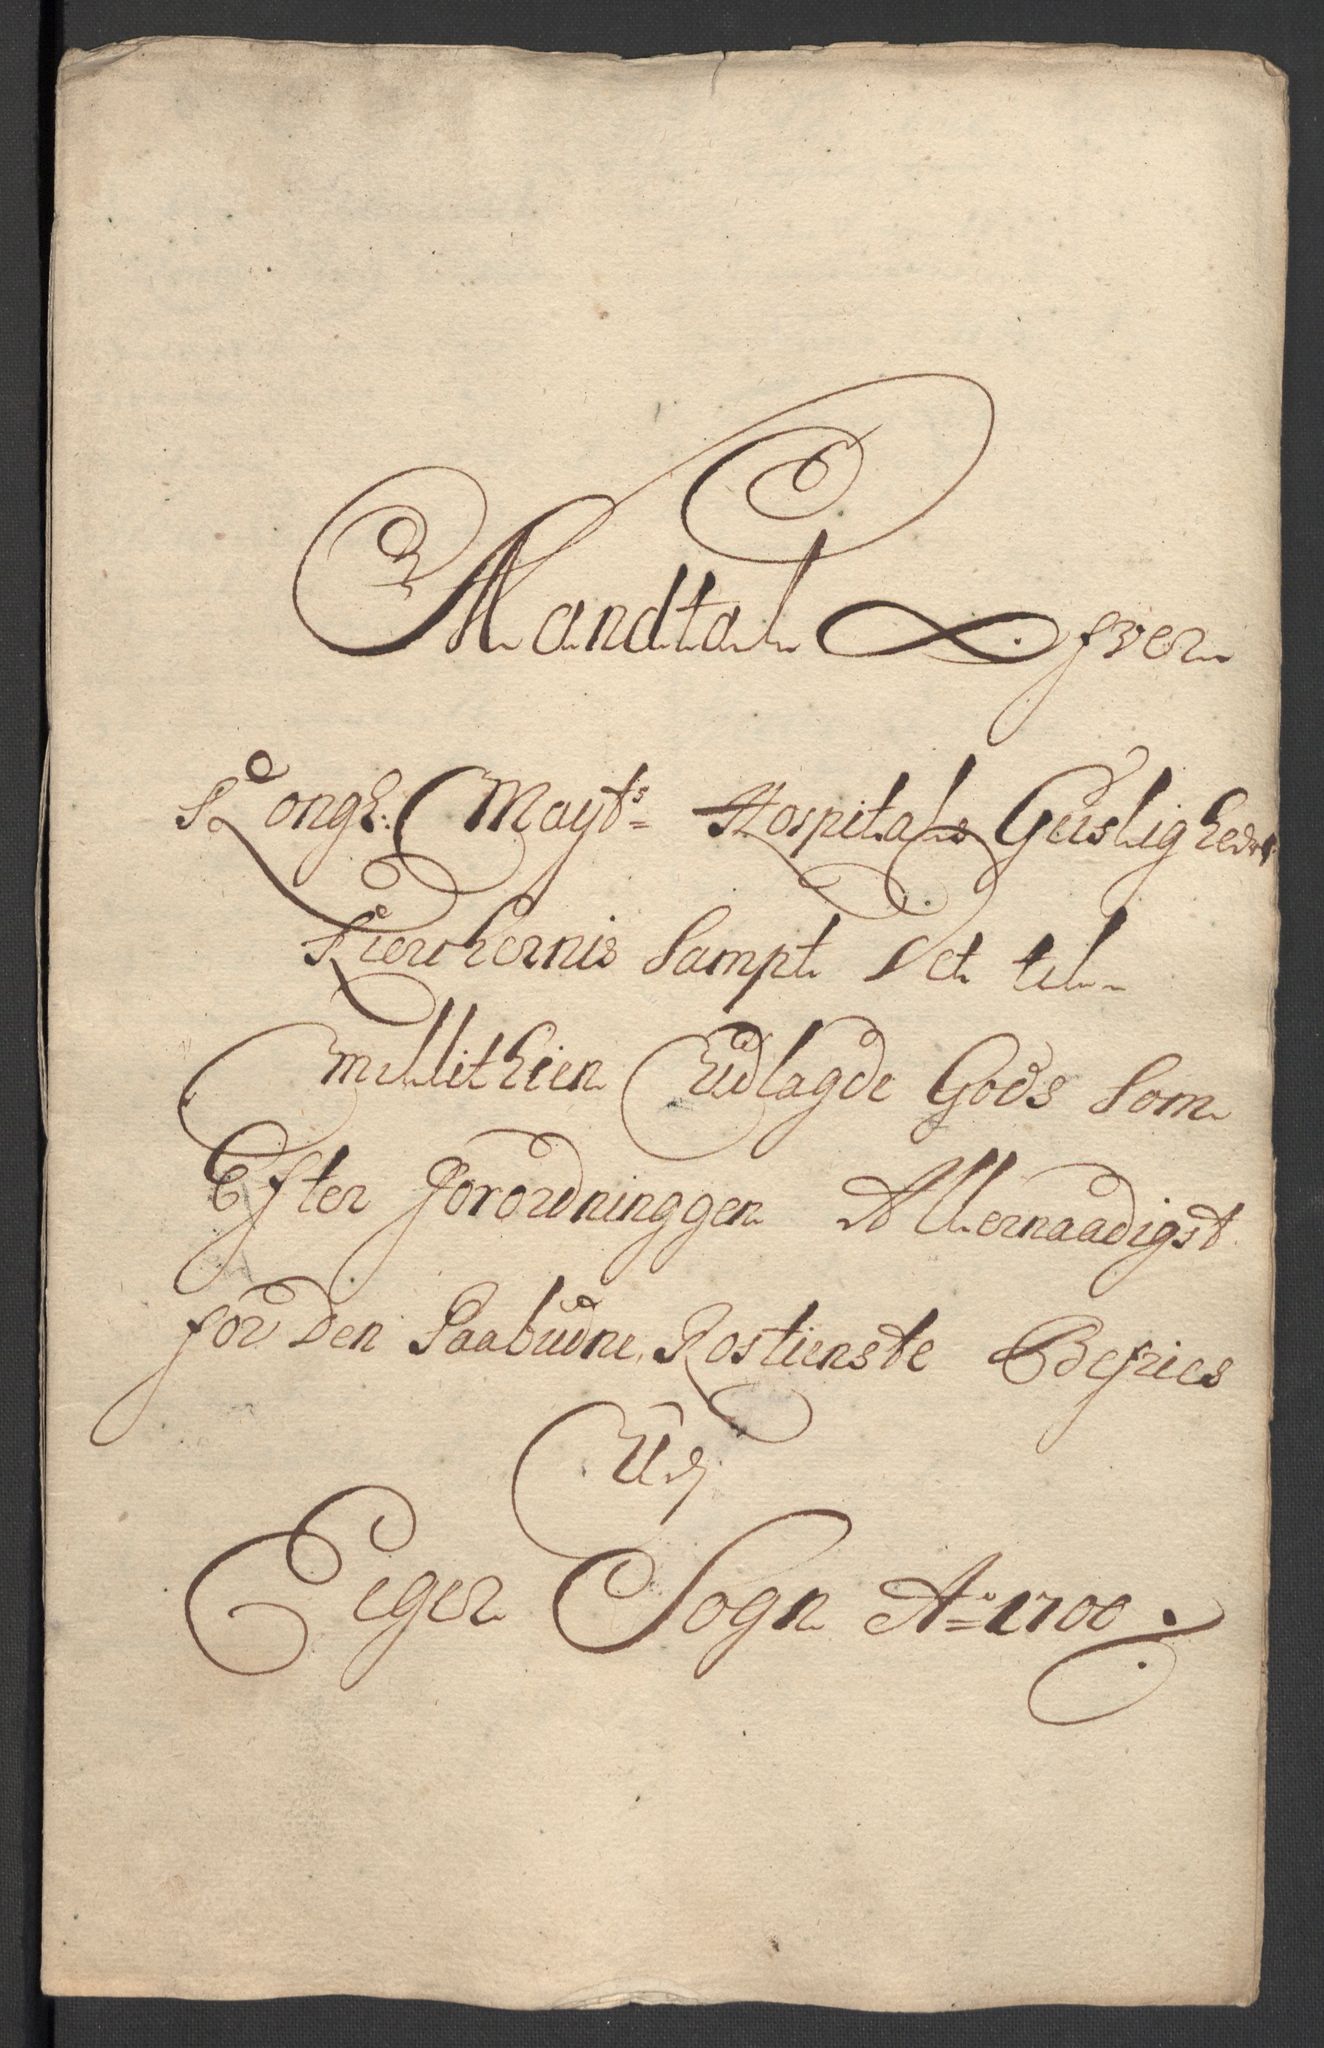 Mandtal Ofver
Kongl: Mayts Hospitals Geisligheds
Kierchernis Sampt Det til
millitzien Udlagde Gods Som
Efter forordninggen Allernaadigst
for den Paabudne Rostienste Befries
Udj
Eger Sogn Ao 1700.